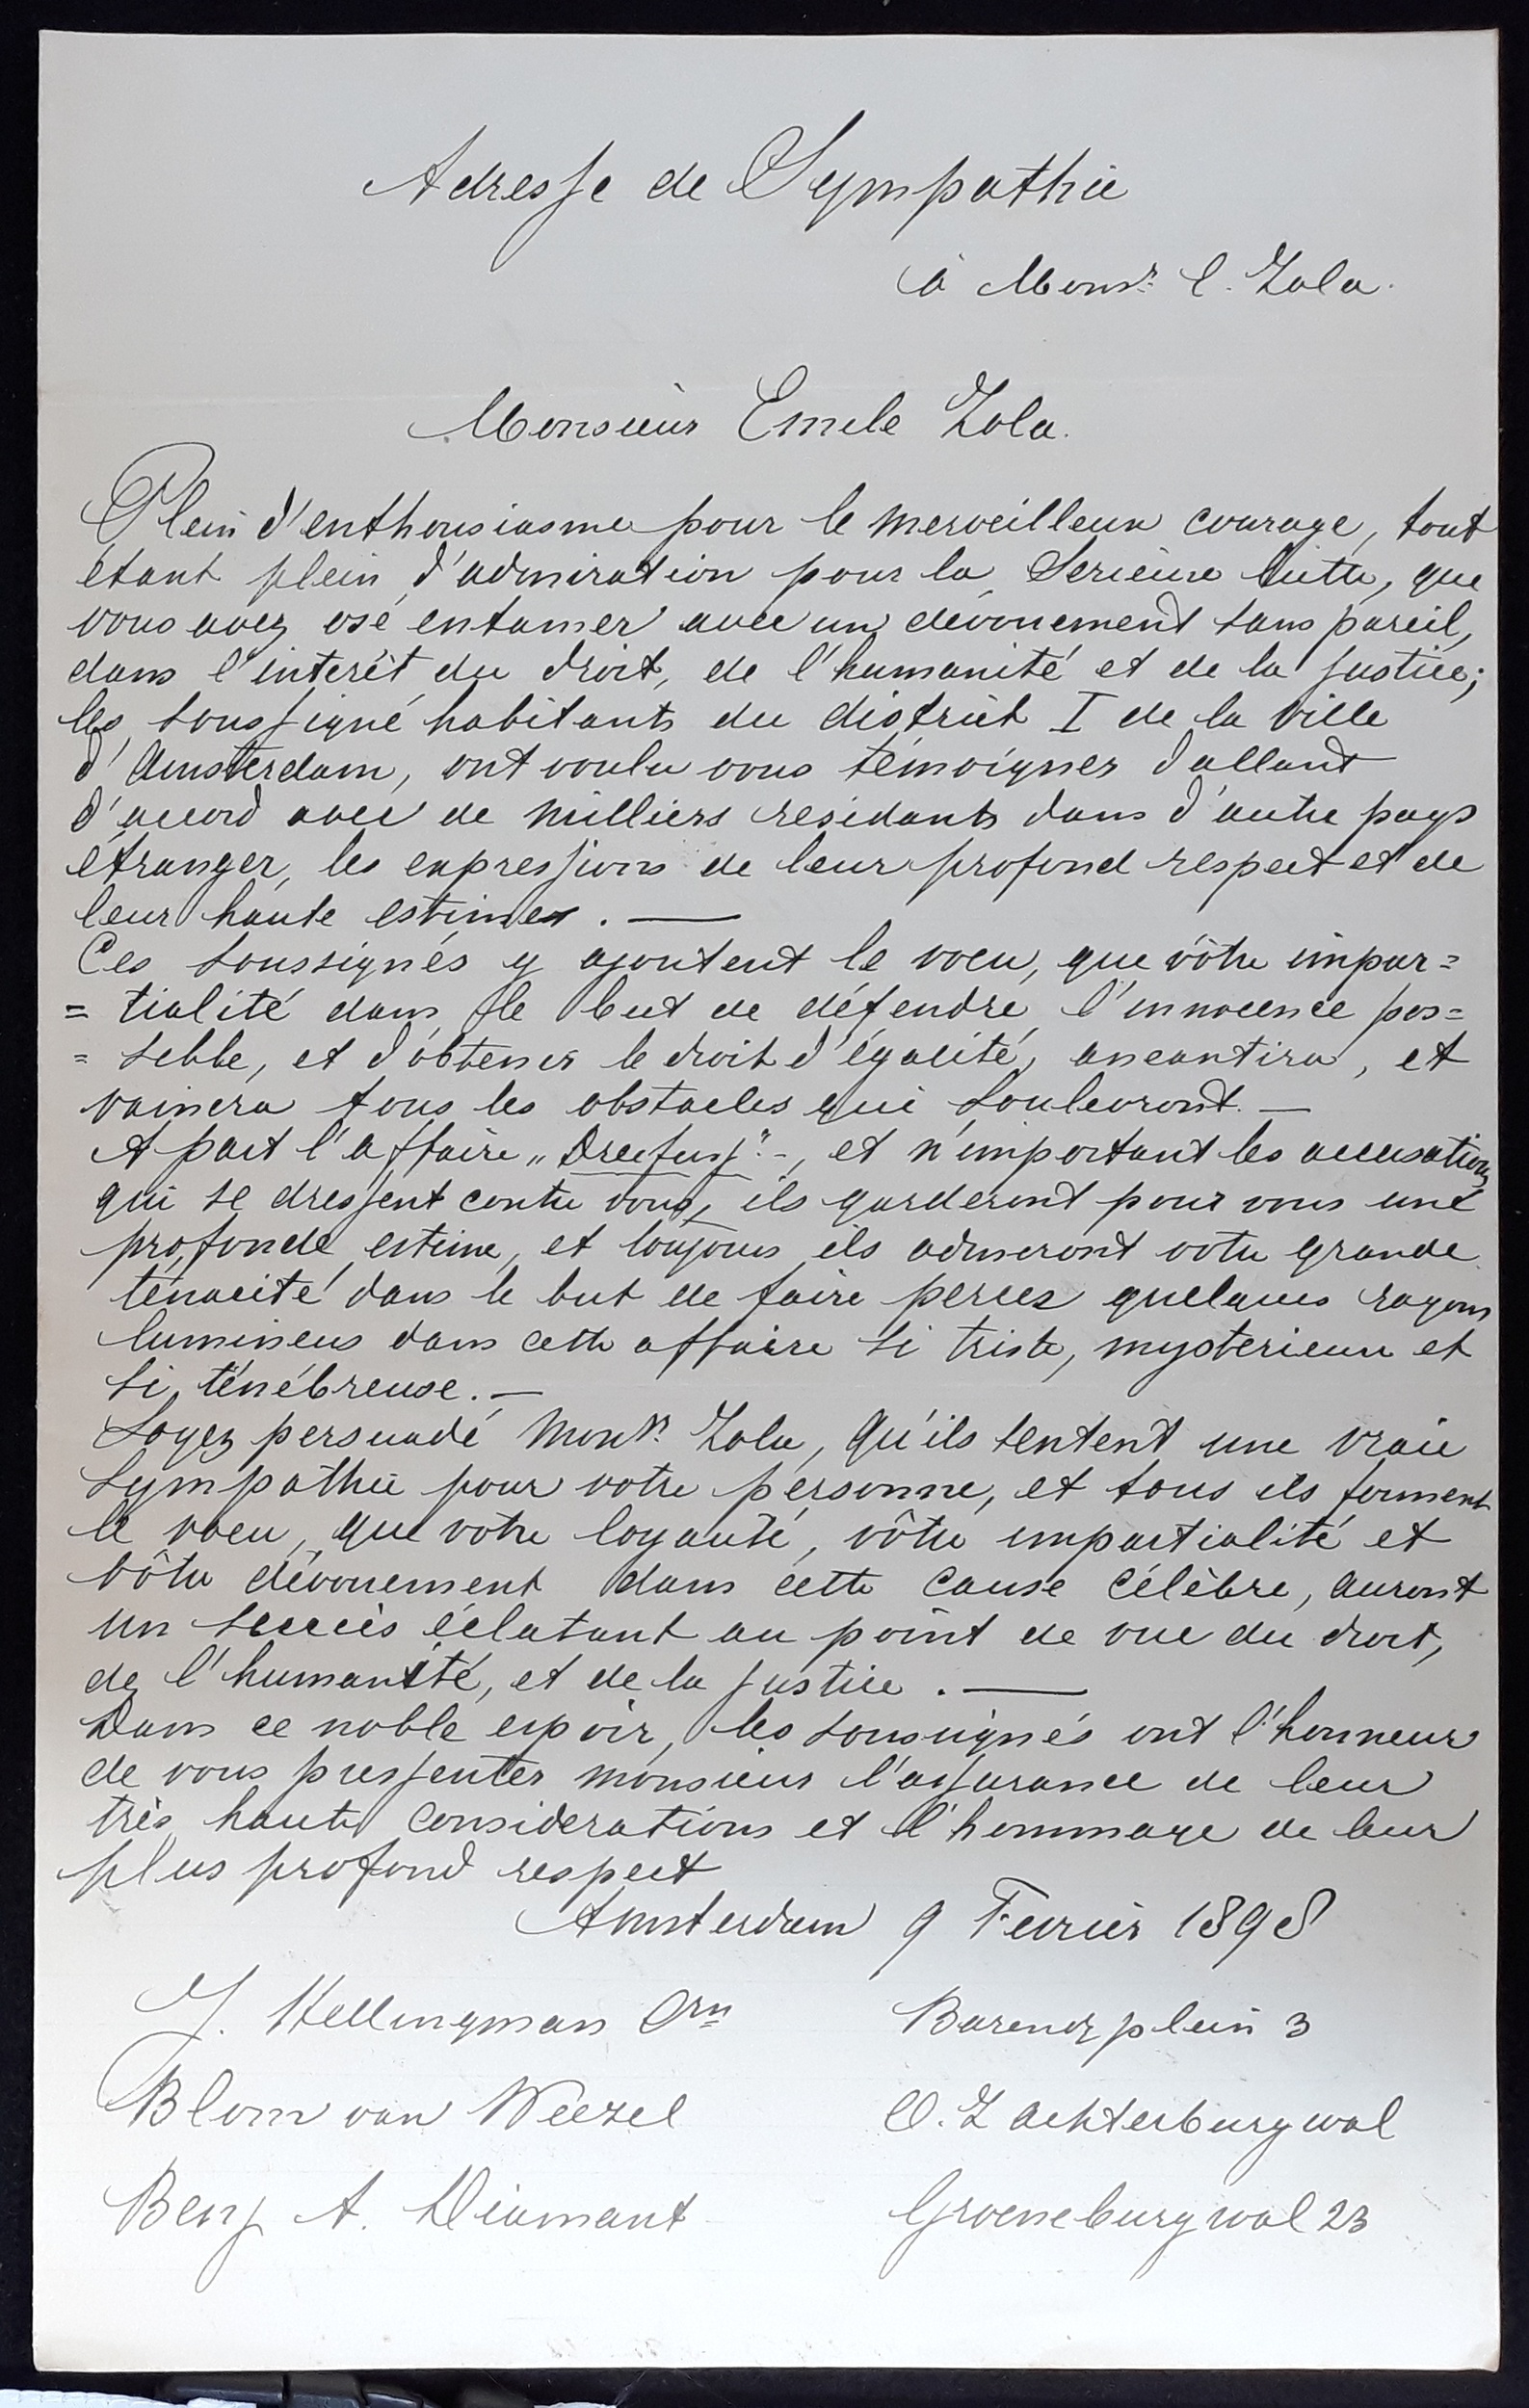 Adresse de Sympathie
à Monsr. E. Zola.
Monsieur Emile Zola.
Plein d'enthousiasme pour le merveilleux courage, tout
étant plein d'admiration pour la Serieuse lutte, que
vous avez osé entamer avec un dévouement sans pareil,
dans l'interêt du droit, de l'humanité et de la justice;
les soussigné habitants du district I de la ville
d'Amsterdam, ont voulu vous témoigner d'allant
d'accord avec de milliers residants dans d'autre pays
étranger, les expressions de leur profond respect et de
leur haute estimer. —
Ces soussignés y ajoutent le voeu, que vôtre impar=
= tialité dans le but de défendre l'innocence pos=
= sible, et d'obtenir le droit d'égalité, aneantira, et
vaincra tous les obstacles qui souleuront. —
A part l'affaire „Dreefuss"-, et n'important les accusations
qui se dressent contre vous, ils garderont pour vous une
profonde estime, et toujours ils admeront votre grande
ténacité dans le but de faire percer quelques rayons
lumineus dans cette affaire si triste, mysterieux et
si ténébreuse. —
Soyez persuadé Monsr. Zola, qu'ils sentent une vraie
Sympathie pour votre personne, et tous ils forment
le voeu, que votre loyauté, vôtre impartialité et
vôtre dévouement dans cette cause célèbre, auront
un succès éclatant au point de vue du droit,
de l'humanité, et de la justice. —
Dans ce noble espoir, les soussignés ont l'honneur
de vous pressenter monsieur l'assurance de leur
très haute considerations et l'hommage de leur
plus profond respect
Amsterdam 9 Fevrier 1898
J. Hellingman Crn Barendzplein 3
Blom van Weezel O.Z Achterburgwal
Benj A. Diamant Groeneburgwal 23